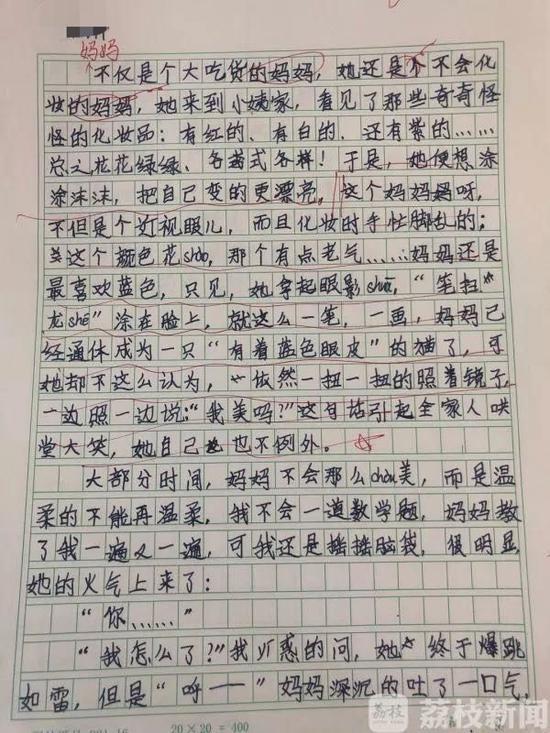 妈妈
不仅是个大吃货的妈妈，她还是个不会化
妆的妈妈，她来到小姨家，看见了那些奇奇怪
怪的化妆品：有红的、有白的、还有紫的……
总之花花绿绿、各式各样！于是，她便想涂
涂沫沫，把自己变的更漂亮。这个妈妈呀，
不但是个近视眼儿，而且化妆时手忙脚乱的；
这个颜色花shào，那个有点老气……妈妈还是
最喜欢蓝色，只见，她拿起眼影shuā，“笔扫
龙shé”涂在脸上，就这么一笔，一画，妈妈已
经通体成为一只“有着蓝色眼皮”的猫了，可
她却不这么认为，依然一扭一扭的照着镜子，
一边照一边说：“我美吗？”这句话引起全家人哄
堂大笑，她自己也不例外。
大部分时间，妈妈不会那么chòu美，而是温
柔的不能再温柔，我不会一道数学题，妈妈教
了我一遍又一遍，可我还是摇摇脑袋，很明显
她的火气上来了：
“你……”
“我怎么了？”我疑惑的问，她终于爆跳
如雷，但是“呼——”妈妈深沉的吐了一口气，
20×20=400
荔枝
荔枝新闻